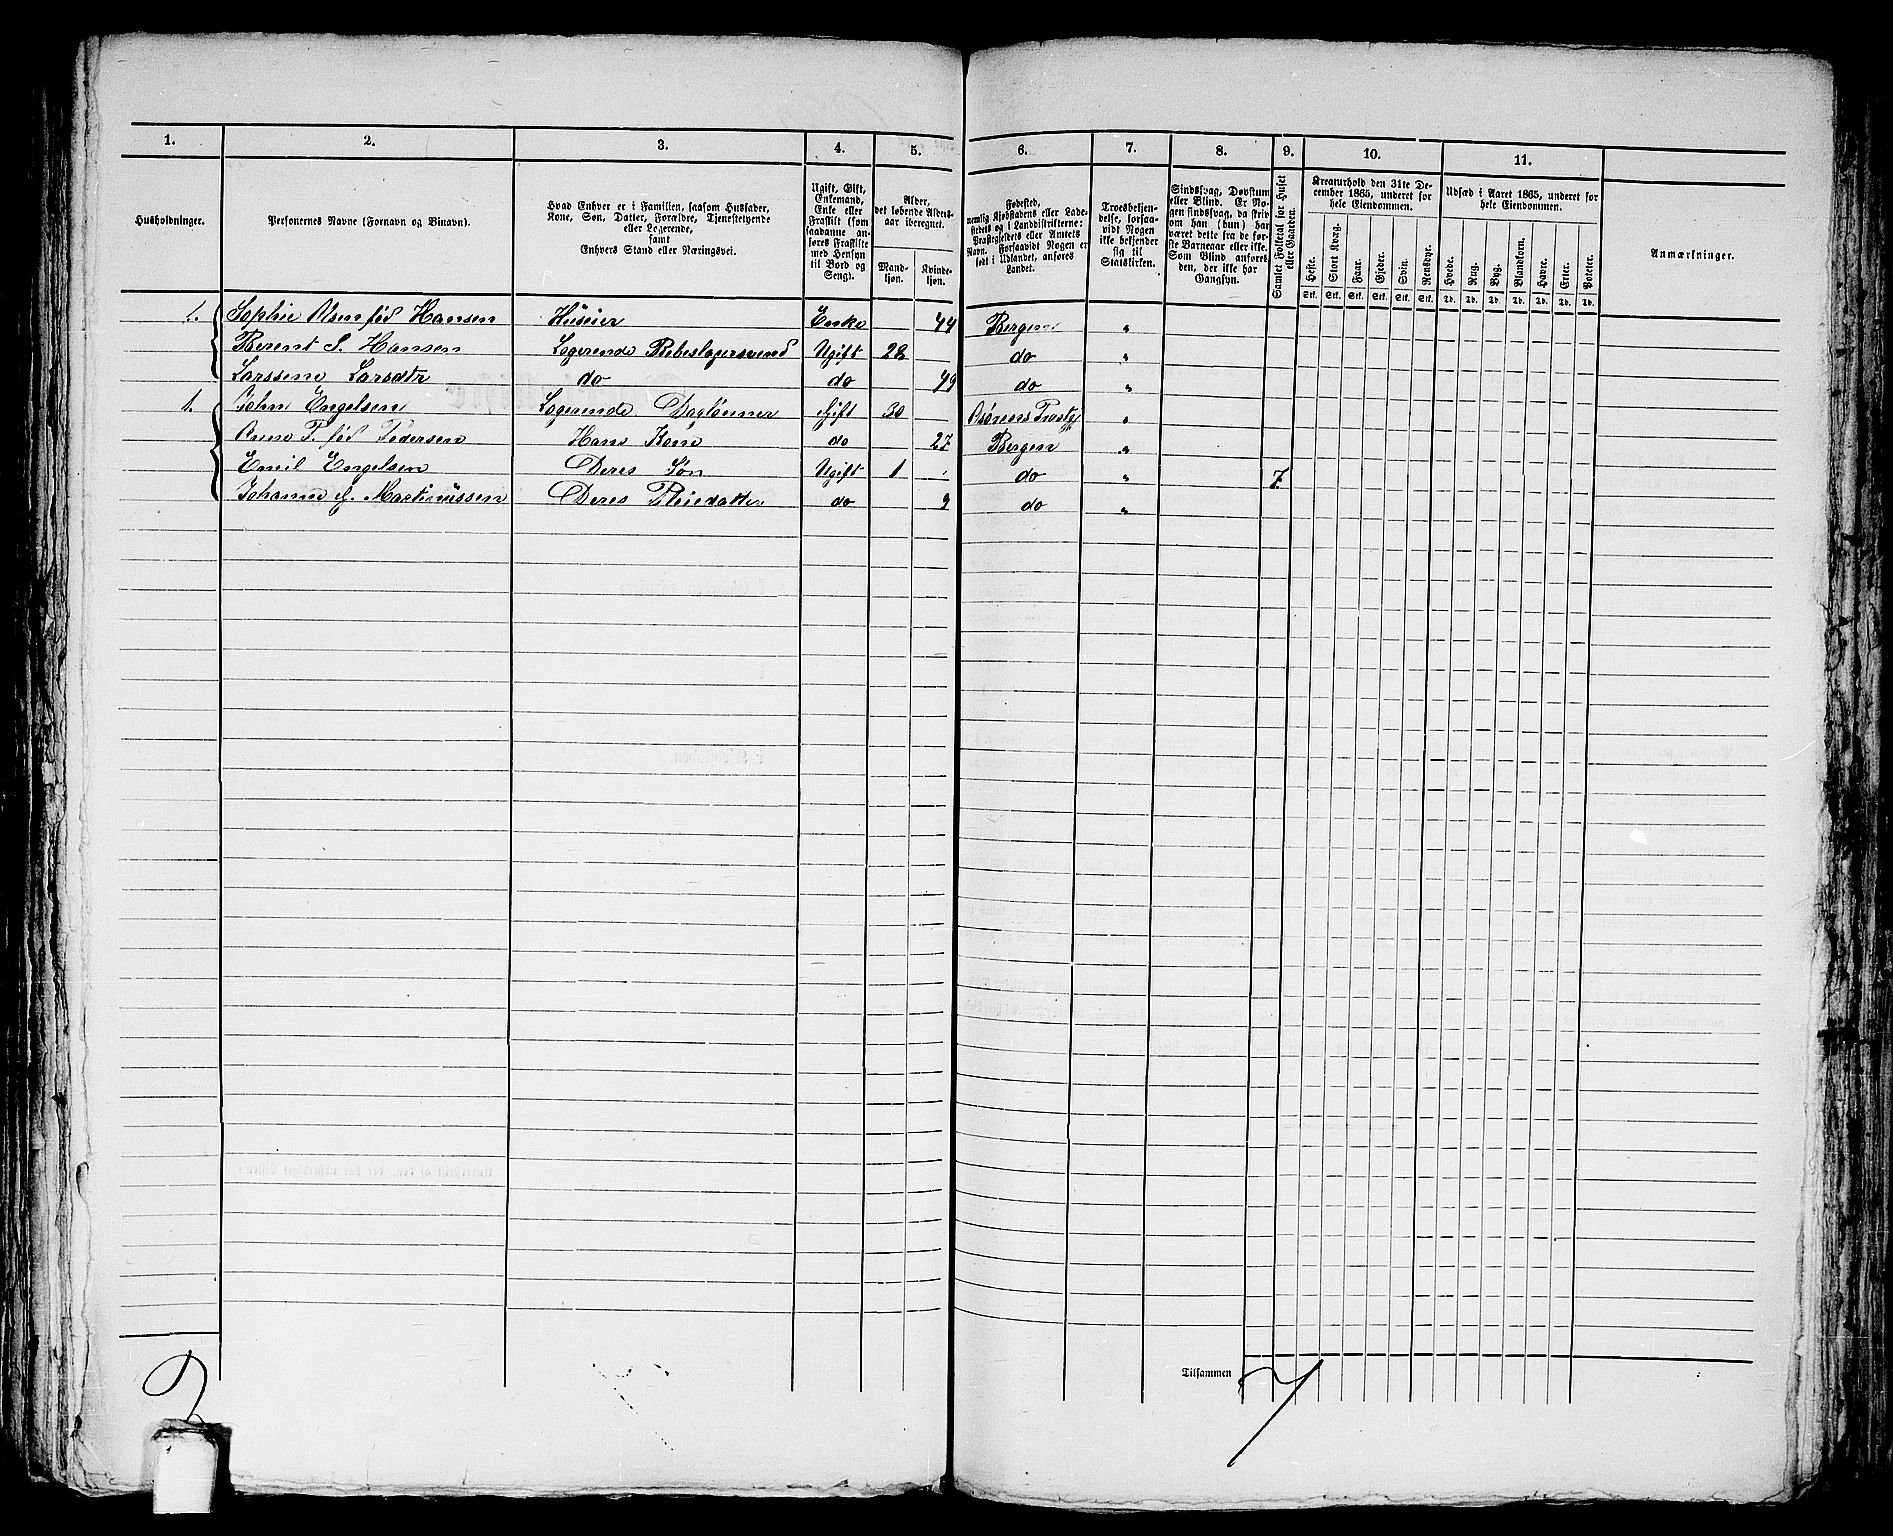 1. 2. 3. 4. 5. 6. 7. 8. 9. 10. 11.
Husholdninger.
Personernes Navne (Fornavn og Binavn).
Hvad Enhver er i Familien, saasom Husfader,
Kone, Søn, Datter, Forældre, Tjenestetyende
eller Logerende,
samt
Enhvers Stand eller Næringsvei.
Ugift, Gift,
Enkemand,
Enke eller
Fraskilt (som
saadanne an-
føres Fraskilte
med Hensyn
til Bord og
Seng).
Alder,
det løbende Alders-
aar iberegnet.
Mand-
kjøn.
Kvinde-
kjøn.
Fødested,
nemlig Kjøbstadens eller Lade-
stedets og i Landdistrikterne:
Præstegjeldets eller Amtets
Navn. Forsaavidt Nogen er
født i Udlandet, anføres
Landet.
Troesbekjen-
delse, forsaa-
vidt Nogen
ikke bekjender
sig til
Statskirken.
Sindssvag, Døvstum
eller Blind. Er No-
gen sindssvag, da skriv
om han (hun) har
været dette fra de før-
ste Barneaar eller ikke.
Som Blind anføres
den, der ikke har
Gangsyn.
Samlet Folketal for Huset
eller Gaarden.
Kreaturhold den 31te De-
cember 1865, underet for
hele Eiendommen.
Heste. Stort Kvæg. Faar. Gjeder. Svin. Rensdyr.
Stk. Stk. Stk. Stk. Stk. Stk.
Udsæd i Aaret 1865, underet for
hele Eiendommen.
Hvede. Rug. Byg. Blandkorn. Havre. Erter. Poteter.
Td. Td. Td. Td. Td. Td. Td.
Anmærkninger.
1. Sophie Olsen fød Hansen Huseier Enke 44 Bergen "
Berent S. Hansen Logerende Rebeslagersvend Ugift 28 do "
Larsdtr do do 49 do "
1. John Engelsen Logerende Daglønner Gift 30 "
Anne T. fød Pedersen Hans Kone do 27 Bergen "
Emil Engelsen Deres Søn Ugift 1 do " 7.
Johanne G. Martinussen Deres Pleiedatter do 9 do "
2
Tilsammen 7